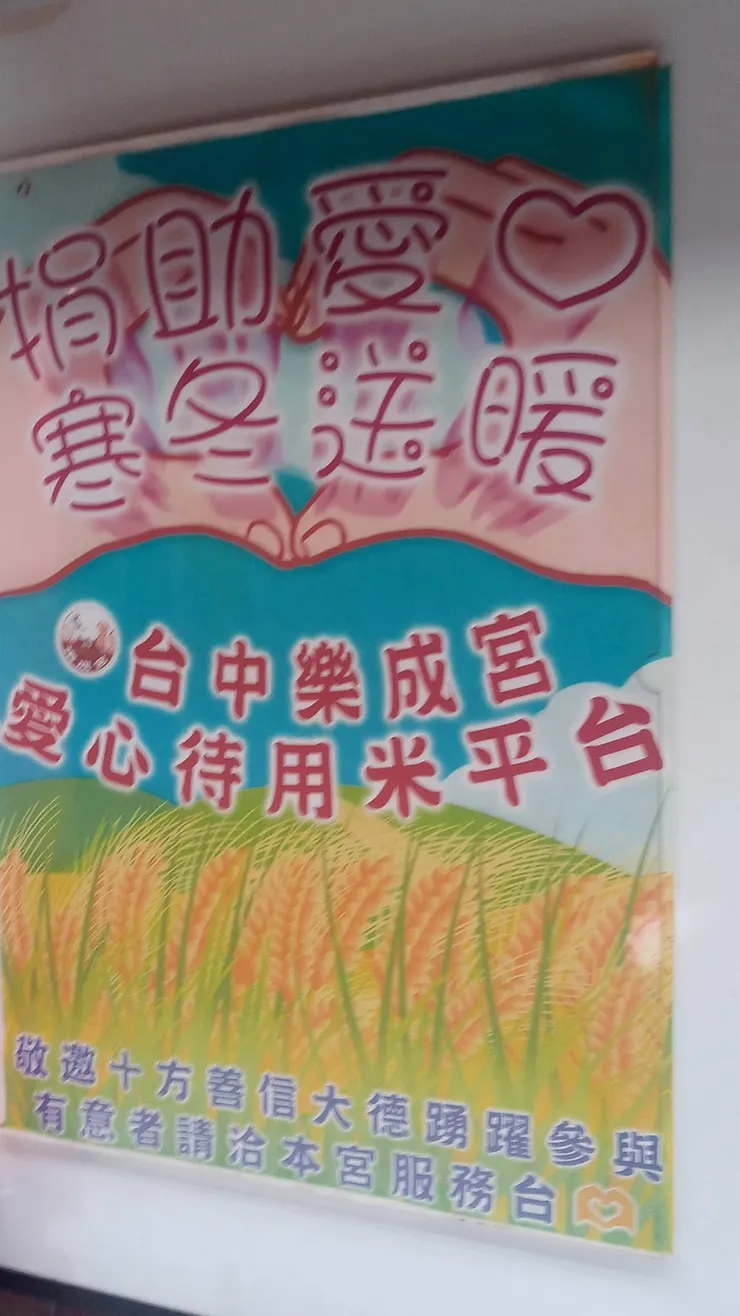 捐助愛♡
寒冬送暖
台中樂成宮
愛心待用米平台
敬邀十方善信大德踴躍參與
有意者請洽本宮服務台